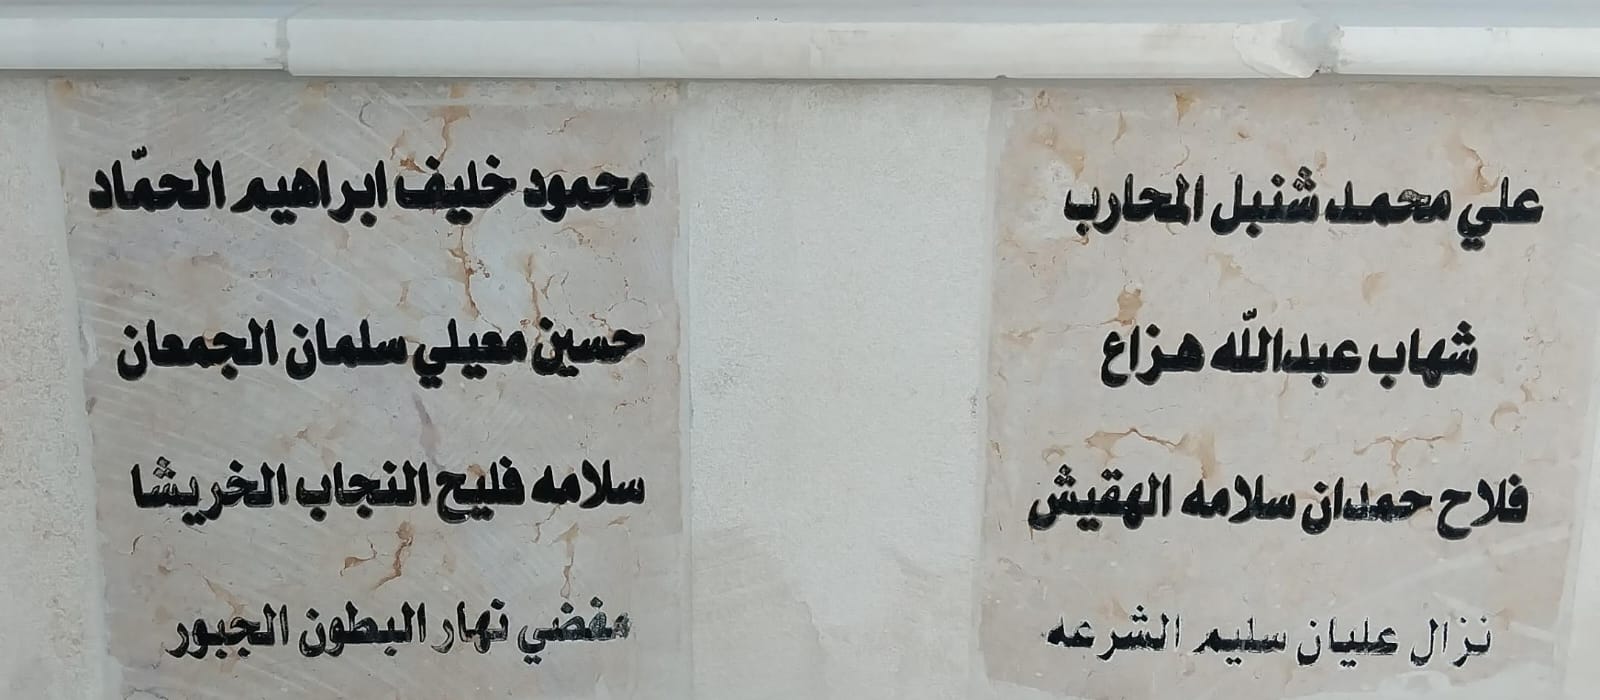 علي محمد شنبل المحارب
شهاب عبدالله هزاع
فلاح حمدان سلامه الهقيش
نزال عليان سليم الشرعه
محمود خليف ابراهيم الحمّاد
حسين معيلي سلمان الجمعان
سلامه فليح النجاب الخريشا
مفضي نهار البطون الجبور